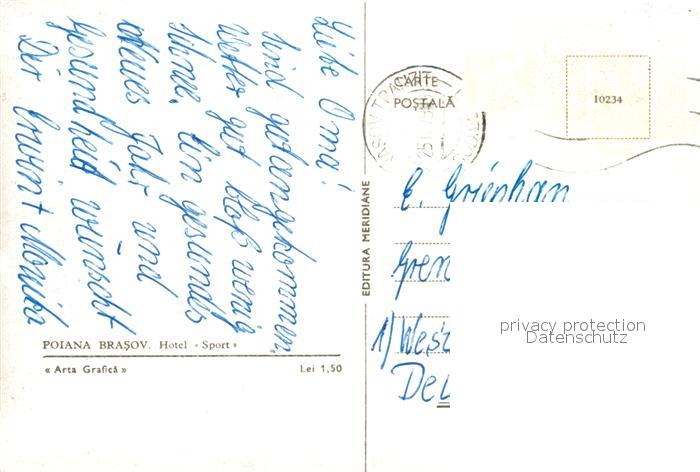 Liebe Oma!
Sind gut angekommen,
Wetter gut bloß wenig
Schnee. Ein gesundes
neues Jahr und
Gesundheit wünscht
Dir Erwin + Monika
POIANA BRAȘOV. Hotel «Sport»
« Arta Grafică »
Lei 1,50
EDITURA MERIDIANE
CARTE
POȘTALĂ
10234
E.
1) West
privacy protection
Datenschutz